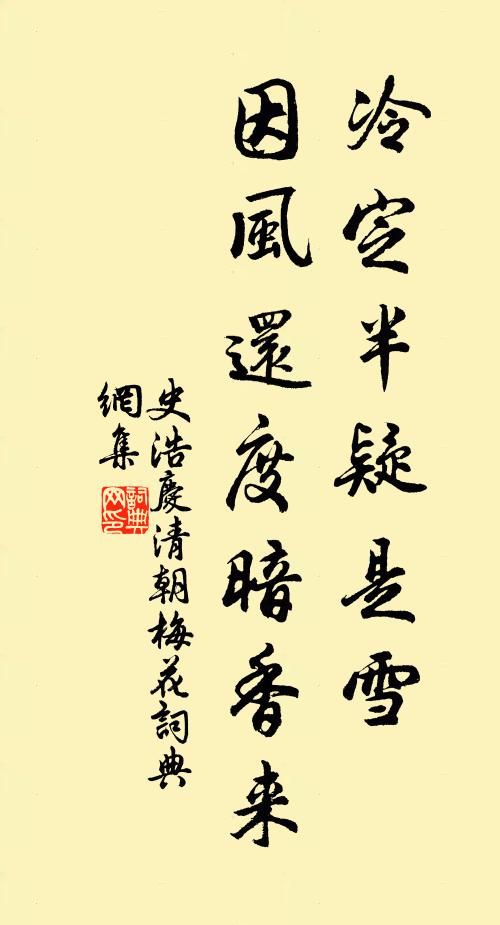 冷定半疑是雪
因風還度暗香来
史浩慶清朝梅花詞典
網集
詞典
网印